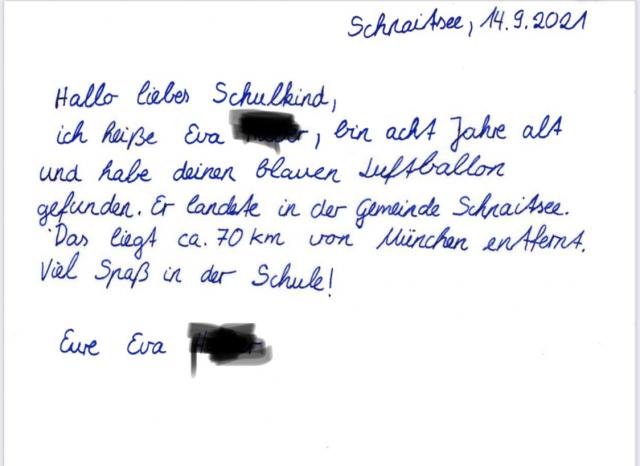 Schnaitsee, 14.9.2021
Hallo liebes Schulkind,
ich heiße Eva , bin acht Jahre alt
und habe deinen blauen Luftballon
gefunden. Er landete in der Gemeinde Schnaitsee.
Das liegt ca. 70 km von München entfernt.
Viel Spaß in der Schule!
Eure Eva